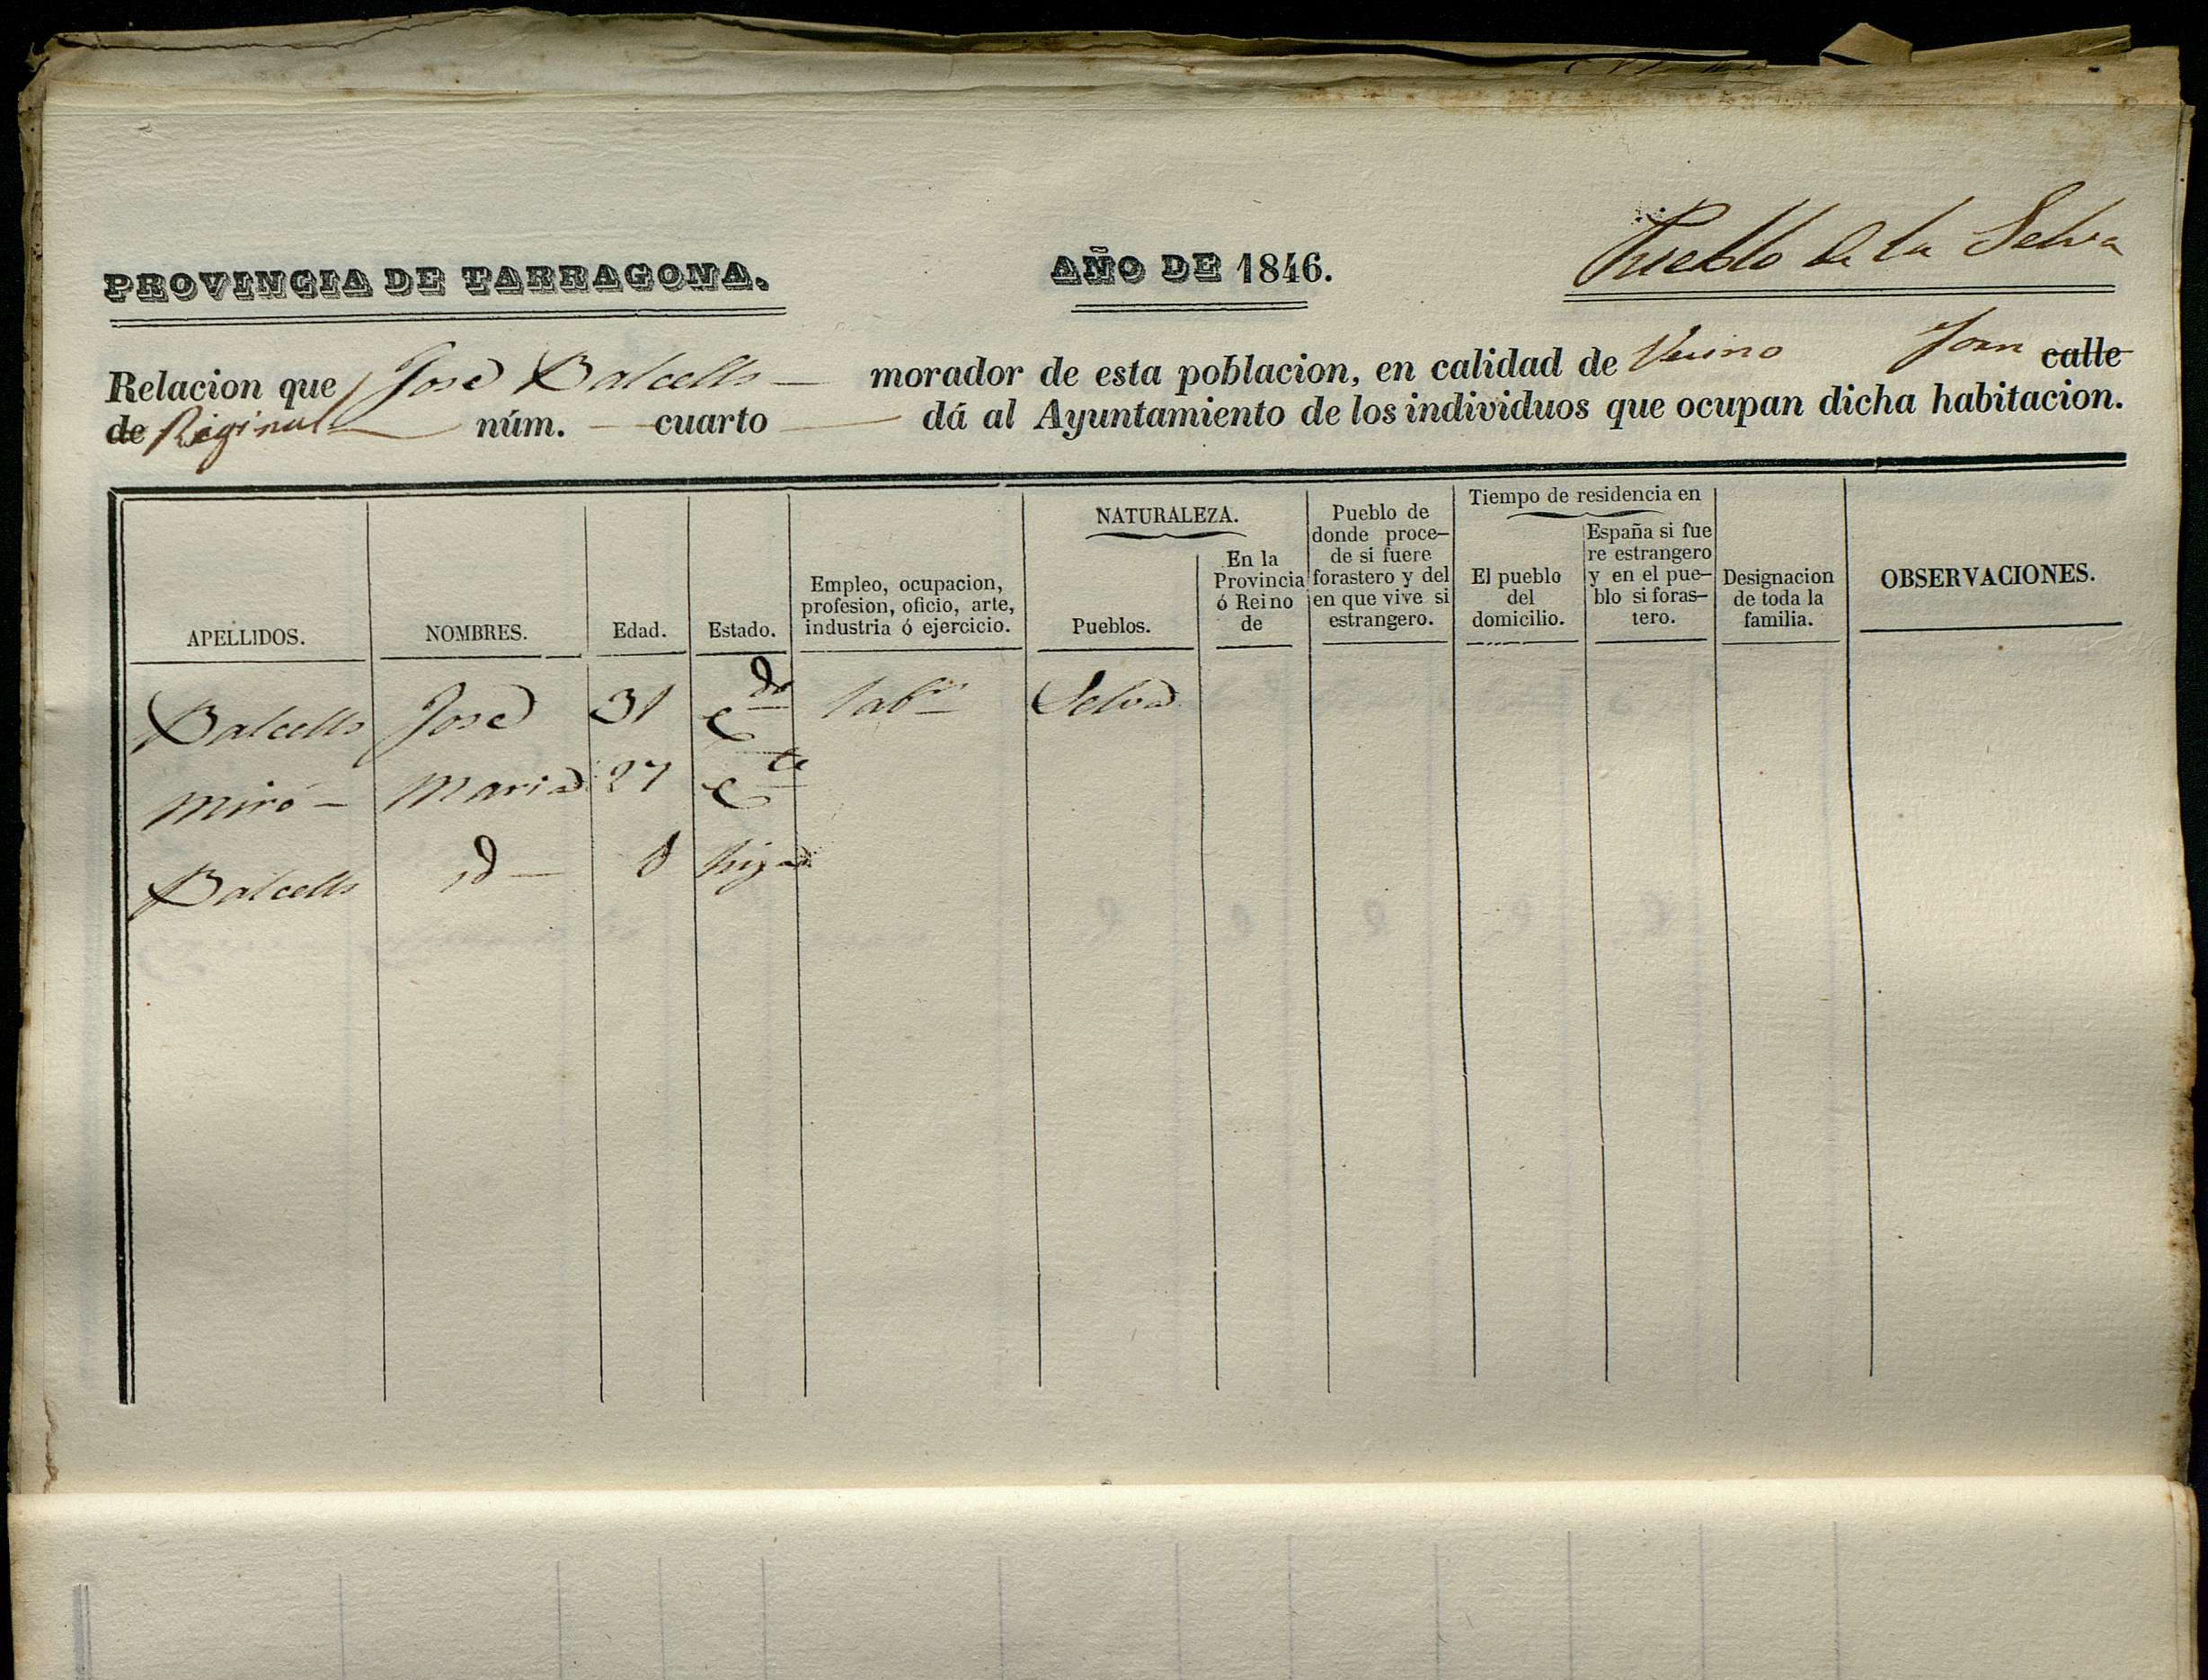 PROVINCIA DE TARRAGONA. AÑO DE 1846. Pueblo de la Selva
Relacion que José Balcells — morador de esta poblacion, en calidad de Vecino calle
de núm. — cuarto — dá al Ayuntamiento de los individuos que ocupan dicha habitacion.
APELLIDOS. NOMBRES. Edad. Estado. Empleo, ocupacion, profesion, oficio, arte, industria ó ejercicio. NATURALEZA. Pueblos. En la Provincia ó Reino de Pueblo de donde proce-de si fuere forastero y del en que vive si estrangero. Tiempo de residencia en El pueblo del domicilio. España si fue re estrangero y en el pue-blo si foras-tero. Designacion de toda la familia. OBSERVACIONES.
Balcells José 31 C.do lab.or Selva
Miró — Maria 27 C.da
Balcells id — hija